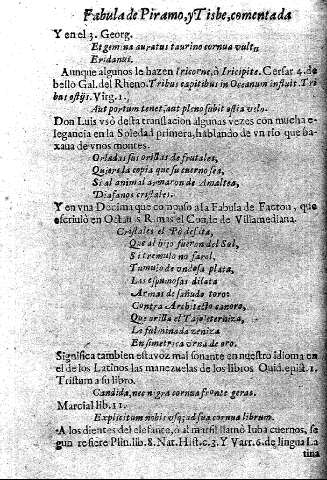 Fabula de Piramo, y Tisbe, comentada
Y en el 3. Georg.
Et gemina auratus taurino cornua vultu
Eridanus.
Aunque algunos le hazen Tricorne, ò Tricipite. Cesar 4. de
bello Gal. del Rheno. Tribus capitibus in Oceanum influit. Tri
bus ostijs. Virg. 1.
Aut portum tenet, aut pleno subit ostia velo.
Don Luis vsò desta translacion algunas vezes con mucha e-
legancia en la Soledad primera, hablando de vn rio que ba-
xaua de vnos montes.
Orladas sus orillas de frutales,
Quiere la copia que su cuerno sea,
Si al animal armaron de Amaltea,
Diafanos cristales.
Y en vna Decima que compuso a la Fabula de Faeton, que
escriuiò en Octauas Rimas el Conde de Villamediana.
Cristales el Pò desata,
Que al hijo fueron del Sol,
Si tremulo no farol,
Tumulo de vndosa plata,
Las espumosas dilata
Armas de sañudo toro:
Contra Architecto canoro,
Que orilla el Tajo eterniza,
La fulminada zeniza
En simetrica vrna de oro.
Significa tambien esta voz mal sonante en nuestro idioma en
el de los Latinos las manezuelas de los libros Ouid. epist. 1.
Tristium a su libro.
Candida, nec nigra cornua fronte geras.
Marcial lib. 11.
Explicitum nobis vsq; ad sua cornua librum.
A los dientes del elefante, ò al marfil llamò Iuba cuernos, se
gun refiere Plin. lib. 8. Nat. Hist. c. 3. Y Varr. 6. de lingua La
tina